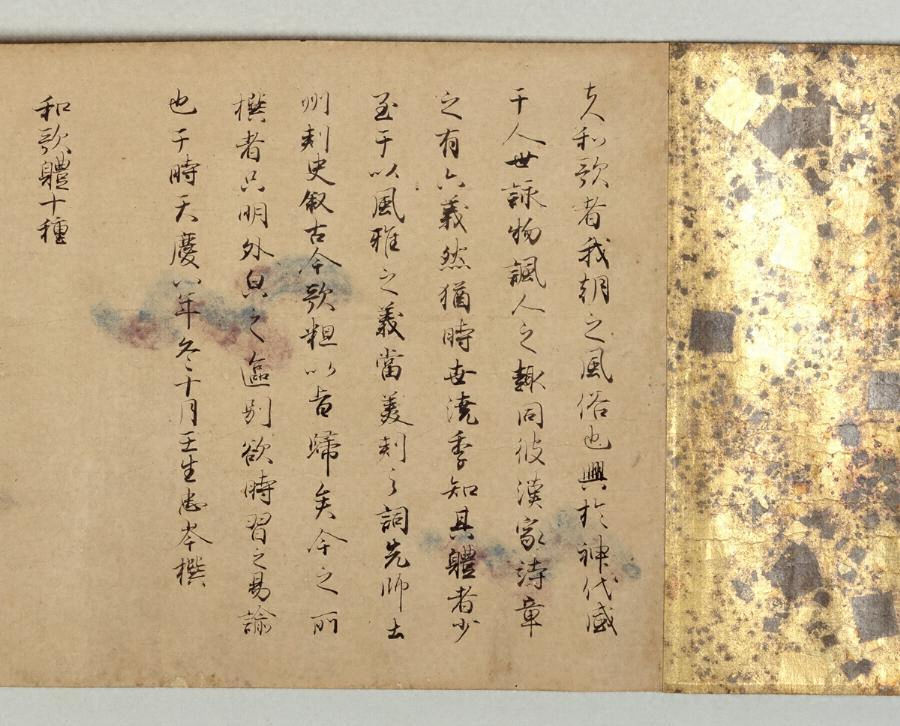 夫和歌者我朝之風俗也興於神代盛
于人世詠物諷人之趣同彼漢家詩章
之有六義然猶時世澆季知其體者少
至于以風雅之義當美刺之詞先師土
州刺史叙古今歌粗以旨歸矣今之所
撰者只明外貝之區別欲時習之易諭
也于時天慶八年冬十月壬生忠岑撰
和歌體十種